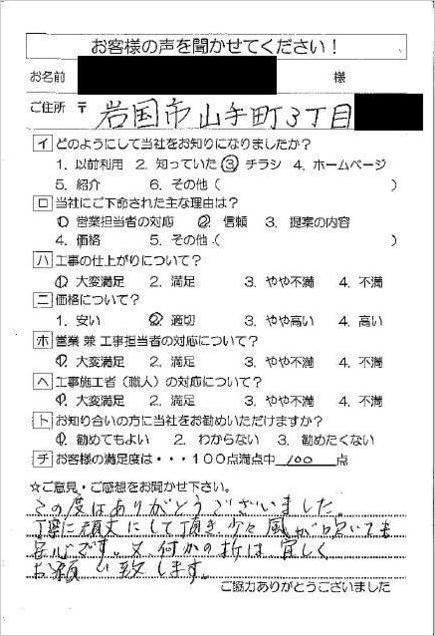 お客様の声を聞かせてください！
お名前 様
ご住所 〒 岩国市山手町3丁目
イ どのようにして当社をお知りになりましたか？
1. 以前利用 2. 知っていた ③ チラシ 4. ホームページ
5. 紹介 6. その他（ ）
ロ 当社にご下命された主な理由は？
① 営業担当者の対応 ② 信頼 3. 提案の内容
4. 価格 5. その他（ ）
ハ 工事の仕上がりについて？
① 大変満足 2. 満足 3. やや不満 4. 不満
ニ 価格について？
1. 安い ② 適切 3. やや高い 4. 高い
ホ 営業 兼 工事担当者の対応について？
① 大変満足 2. 満足 3. やや不満 4. 不満
ヘ 工事施工者（職人）の対応について？
① 大変満足 2. 満足 3. やや不満 4. 不満
ト お知り合いの方に当社をお勧めいただけますか？
① 勧めてもよい 2. わからない 3. 勧めたくない
チ お客様の満足度は・・・100点満点中 100 点
☆ご意見・ご感想をお聞かせ下さい。
この度はありがとうございました。
丁寧に頑丈にして頂き少々風が吹いても
安心です。又、何かの折は宜しく
お願い致します。
ご協力ありがとうございました